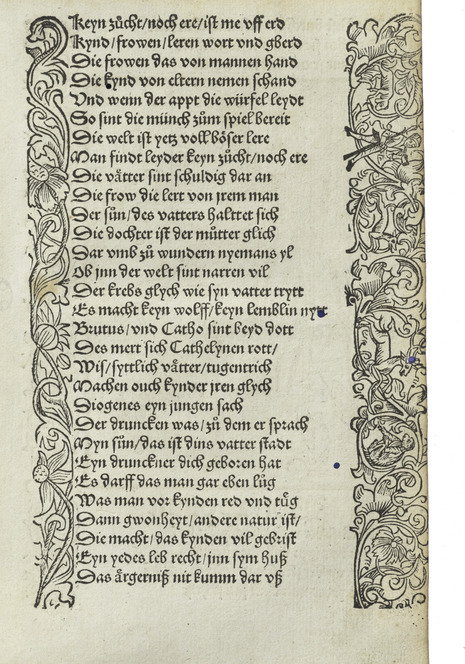 Keyn zůcht/noch ere/ist me vff erd
Kynd/frowen/leren wort vnd gberd
Die frowen das von mannen hand
Die kynd von eltern nemen schand
Vnd wenn der appt die würfel leydt
So sint die münch zům spiel bereit
Die welt ist yetz voll böser lere
Man findt leyder keyn zůcht/noch ere
Die vätter sint schuldig dar an
Die frow die lert von jrem man
Der sůn/des vatters halttet sich
Die dochter ist der můtter glich
Dar vmb zů wundern nyemans yl
Ob jnn der welt sint narren vil
Der krebs glych wie syn vatter trytt
Es macht keyn wolff/keyn lemblin nytt
Brutus/vnd Catho sint beyd dott
Des mert sich Cathelynen rott/
Wis/syttlich vätter/tugentrich
Machen ouch kynder jren glych
Diogenes eyn jungen sach
Der druncken was/zů dem er sprach
Myn sůn/das ist dins vatter stadt
Eyn drunckner dich geboren hat
Es darff das man gar eben lůg
Was man vor kynden red vnd tůg
Dann gwonheyt/andere natur ist/
Die macht/das kynden vil gebrist
Eyn yedes leb recht/jnn sym huß
Das ärgerniß nit kumm dar vß